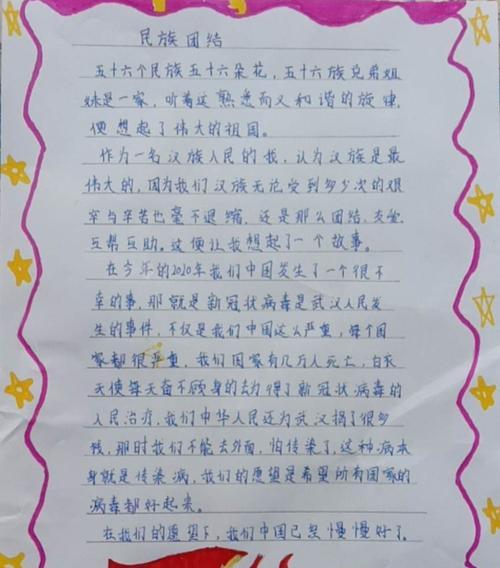 民族团结
五十六个民族五十六朵花，五十六族兄弟姐
妹是一家，听着这熟悉而又和谐的旋律，
便想起了伟大的祖国。
作为一名汉族人民的我，认为汉族是最
伟大的，因为我们汉族无论受到多少次的艰
辛与辛苦也毫不退缩，还是那么团结，友爱
互帮互助。这便让我想起了一个故事。
在今年的2020年我们中国发生了一个很不
幸的事，那就是新冠状病毒是武汉人民发
生的事件，不仅是我们中国这么严重，每个国
家都很严重，我们国家有几万人死亡，白衣
天使每天奋不顾身的去为得了新冠状病毒的
人民治疗，我们中华人民还为武汉捐了很多
钱，那时我们不能去外面，怕传染了，这种病本
身就是传染病，我们的愿望是希望所有国家的
病毒都好起来。
在我们的愿望下，我们中国已经慢慢好了。